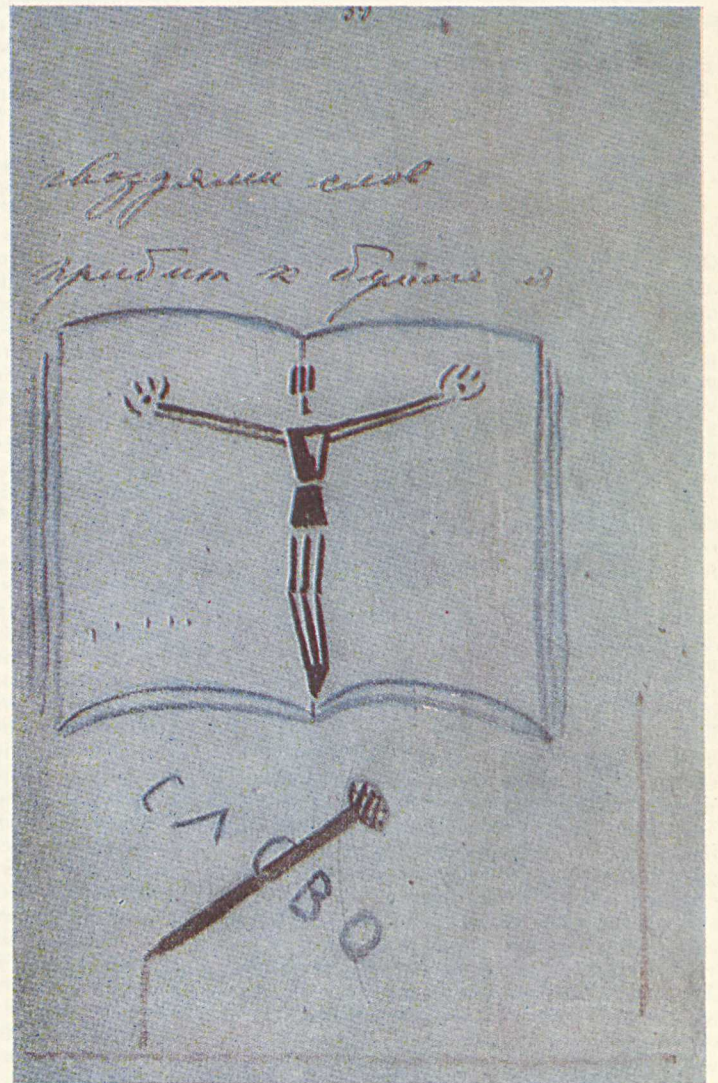 гвоздями слов
прибит к бумаге я
СЛОВО